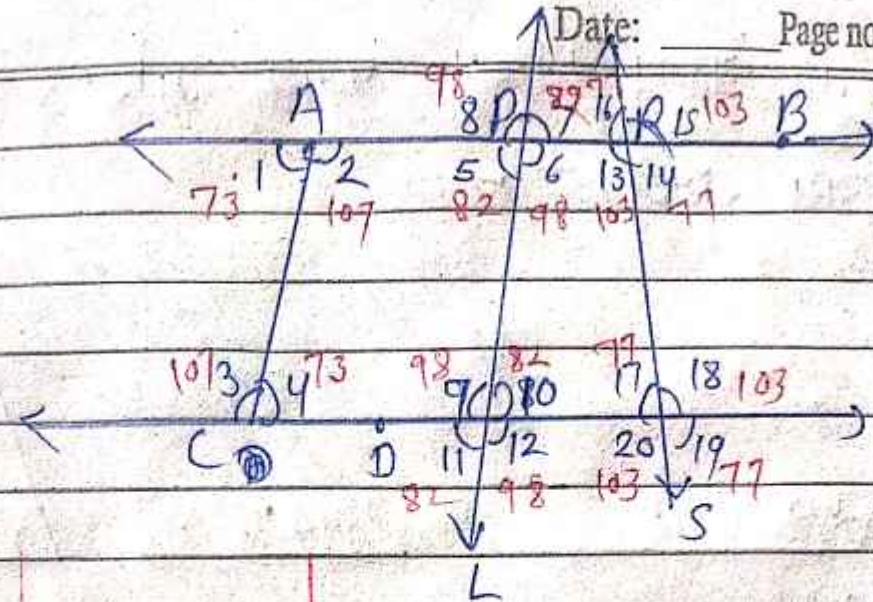 Date: Page no
98 82 7
A 8 P 7 16 R 15 103 B
1 2 5 6 13 14
73 107 82 98 103 77
107 3 4 73 98 82 77
9 10 17 18 103
C D 11 12 20 19
82 98 103 77
S
L